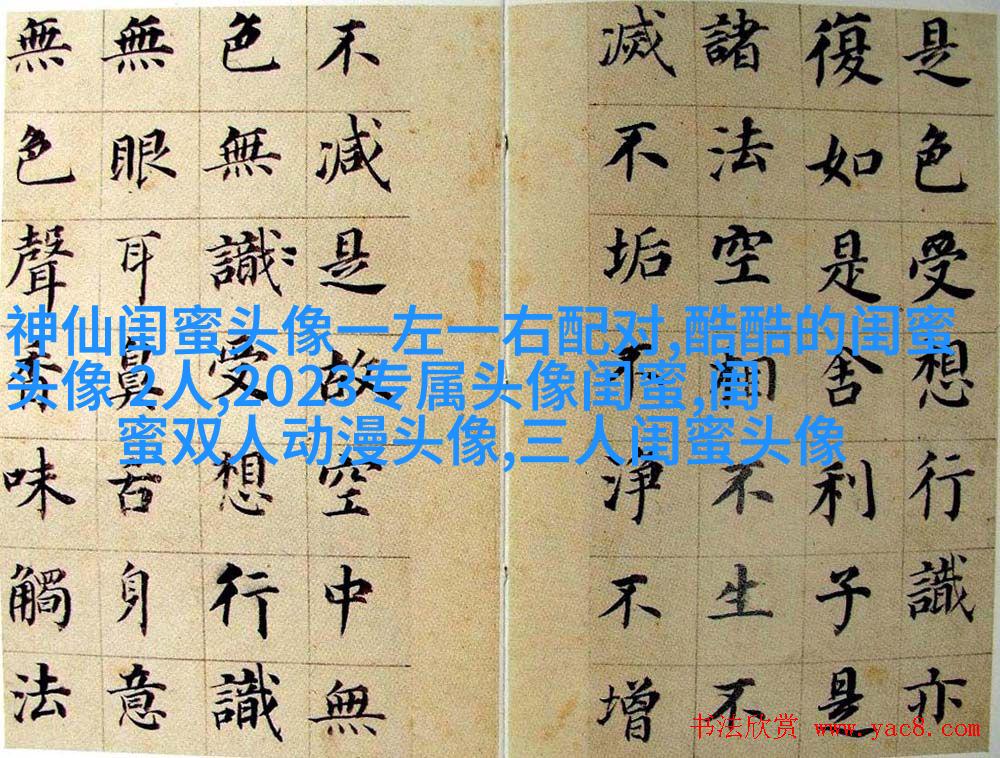 是色受想行識亦
復如是舍利子是
諸法空相不生不
滅不垢不淨不增
不減是故空中無
色無識受想行識
無眼耳鼻舌身意
無色聲香味觸法
神仙闺蜜头像一左一右配对,酷酷的闺蜜
头像 2人,2023专属头像闺蜜,闺
蜜双人动漫头像,三人闺蜜头像
书法欣赏 www.yac8.com